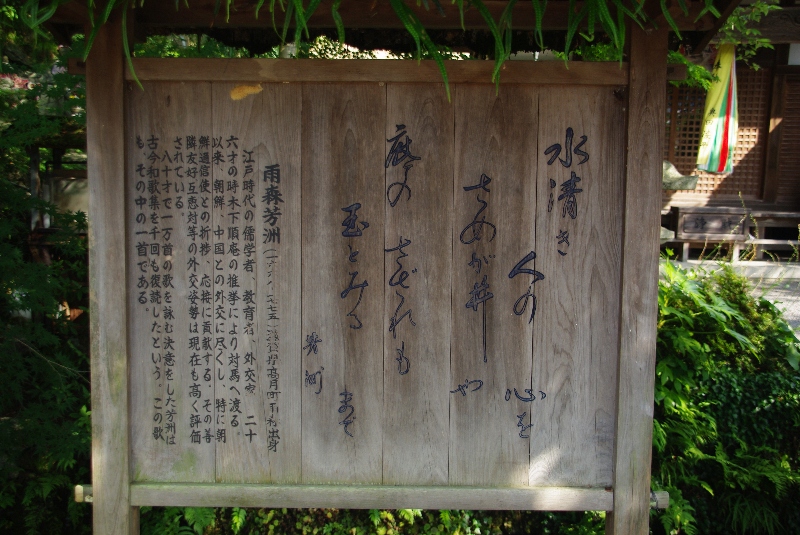 水清き
人の
心を
さめが井
や
底の
さざれも
玉とみる
まで
芳洲
雨森芳洲(一六六八~一七五五)滋賀県高月町雨森出身
江戸時代の儒学者、教育者、外交家、二十
六才の時木下順庵の推挙により対馬へ渡る。
以来、朝鮮、中国との外交に尽くし、特に朝
鮮通信使との折捗、応接に貢献する。その善
隣友好互恵対等の外交姿勢は現在も高く評価
されている。
八十才で一万首の歌を詠む決意をした芳洲は
古今和歌集を千回も復読したという。この歌
も、その中の一首である。